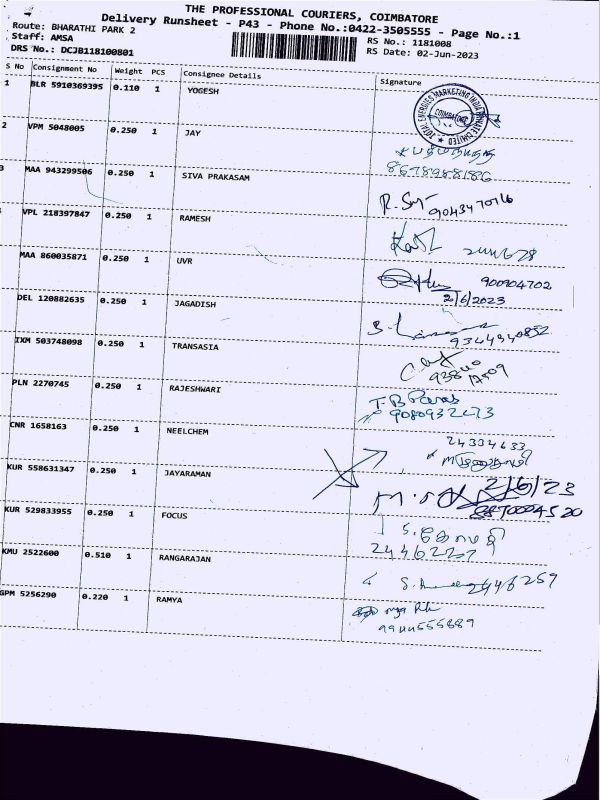 THE PROFESSIONAL COURIERS, COIMBATORE
Delivery Runsheet - P43 - Phone No.:0422-3505555 - Page No.:1
Route: BHARATHI PARK 2
RS No.: 1181008
Staff: AMSA
RS Date: 02-Jun-2023
DRS No.: DCJB118100801
S No Consignment No Weight PCS Consignee Details Signature
1 BLR 5910369395 0.110 1 YOGESH
TOTAL ENERGIES MARKETING INDIA PRIVATE LIMITED
COIMBATORE
2 VPM 5048005 0.250 1 JAY
8678988186
3 MAA 943299506 0.250 1 SIVA PRAKASAM
VPL 218397847 0.250 1 RAMESH
MAA 860035871 0.250 1 UVR
900904702
2/6/2023
DEL 120882635 0.250 1 JAGADISH
IXM 503748098 0.250 1 TRANSASIA
PLN 2270745 0.250 1 RAJESHWARI
CNR 1658163 0.250 1 NEELCHEM
24334633
KUR 558631347 0.250 1 JAYARAMAN
2/6/23
KUR 529833955 0.250 1 FOCUS
KMU 2522600 0.510 1 RANGARAJAN
2446259
GPM 5256290 0.220 1 RAMYA
9944555889